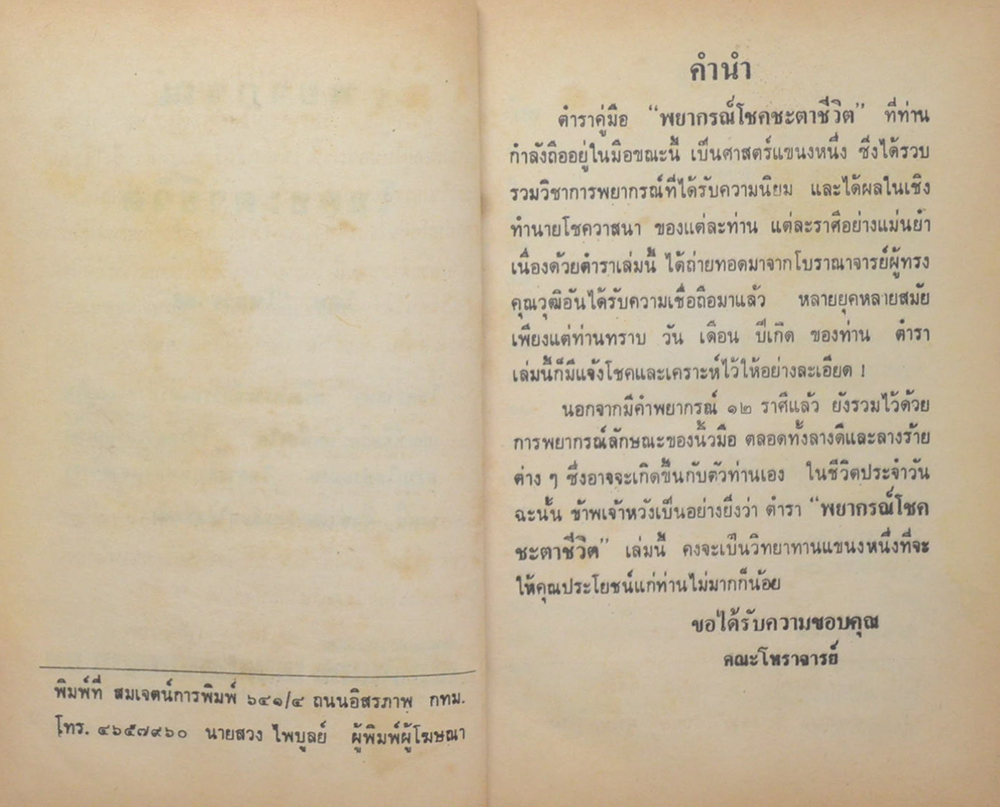 พิมพ์ที่ สมเจตน์การพิมพ์ ๖๔๑/๔ ถนนอิสรภาพ กทม.
โทร. ๔๖๕๗๙๖๐ นายสวง ไพบูลย์ ผู้พิมพ์ผู้โฆษณา
คำนำ
ตำราคู่มือ “พยากรณ์โชคชะตาชีวิต” ที่ท่าน
กำลังถืออยู่ในมือขณะนี้ เป็นศาสตร์แขนงหนึ่ง ซึ่งได้รวบ
รวมวิชาการพยากรณ์ที่ได้รับความนิยม และได้ผลในเชิง
ทำนายโชควาสนา ของแต่ละท่าน แต่ละราศีอย่างแม่นยำ
เนื่องด้วยตำราเล่มนี้ ได้ถ่ายทอดมาจากโบราณาจารย์ผู้ทรง
คุณวุฒิอันได้รับความเชื่อถือมาแล้ว หลายยุคหลายสมัย
เพียงแต่ท่านทราบ วัน เดือน ปีเกิด ของท่าน ตำรา
เล่มนี้ก็มีแจ้งโชคและเคราะห์ไว้ให้อย่างละเอียด !
นอกจากมีคำพยากรณ์ ๑๒ ราศีแล้ว ยังรวมไว้ด้วย
การพยากรณ์ลักษณะของนิ้วมือ ตลอดทั้งลางดีและลางร้าย
ต่าง ๆ ซึ่งอาจจะเกิดขึ้นกับตัวท่านเอง ในชีวิตประจำวัน
ฉะนั้น ข้าพเจ้าหวังเป็นอย่างยิ่งว่า ตำรา “พยากรณ์โชค
ชะตาชีวิต” เล่มนี้ คงจะเป็นวิทยาทานแขนงหนึ่งที่จะ
ให้คุณประโยชน์แก่ท่านไม่มากก็น้อย
ขอได้รับความชอบคุณ
คณะโหราจารย์